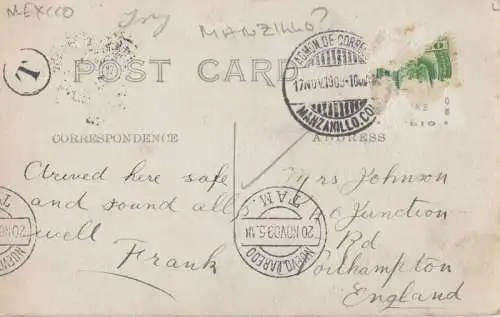 MEXICO
MANZILLO?
T
POST CARD
ADMON. DE CORRE
17 NOV. 1909 - 10
MANZANILLO. COL
CORRESPONDENCE
ADDRESS
Arived here safe
and sound all
well
Frank
Mrs Johnson
40 Junction
Rd
Northampton
England
TAM.
20 NOV 09
NUEVO LAREDO
20 NO
NUEVO